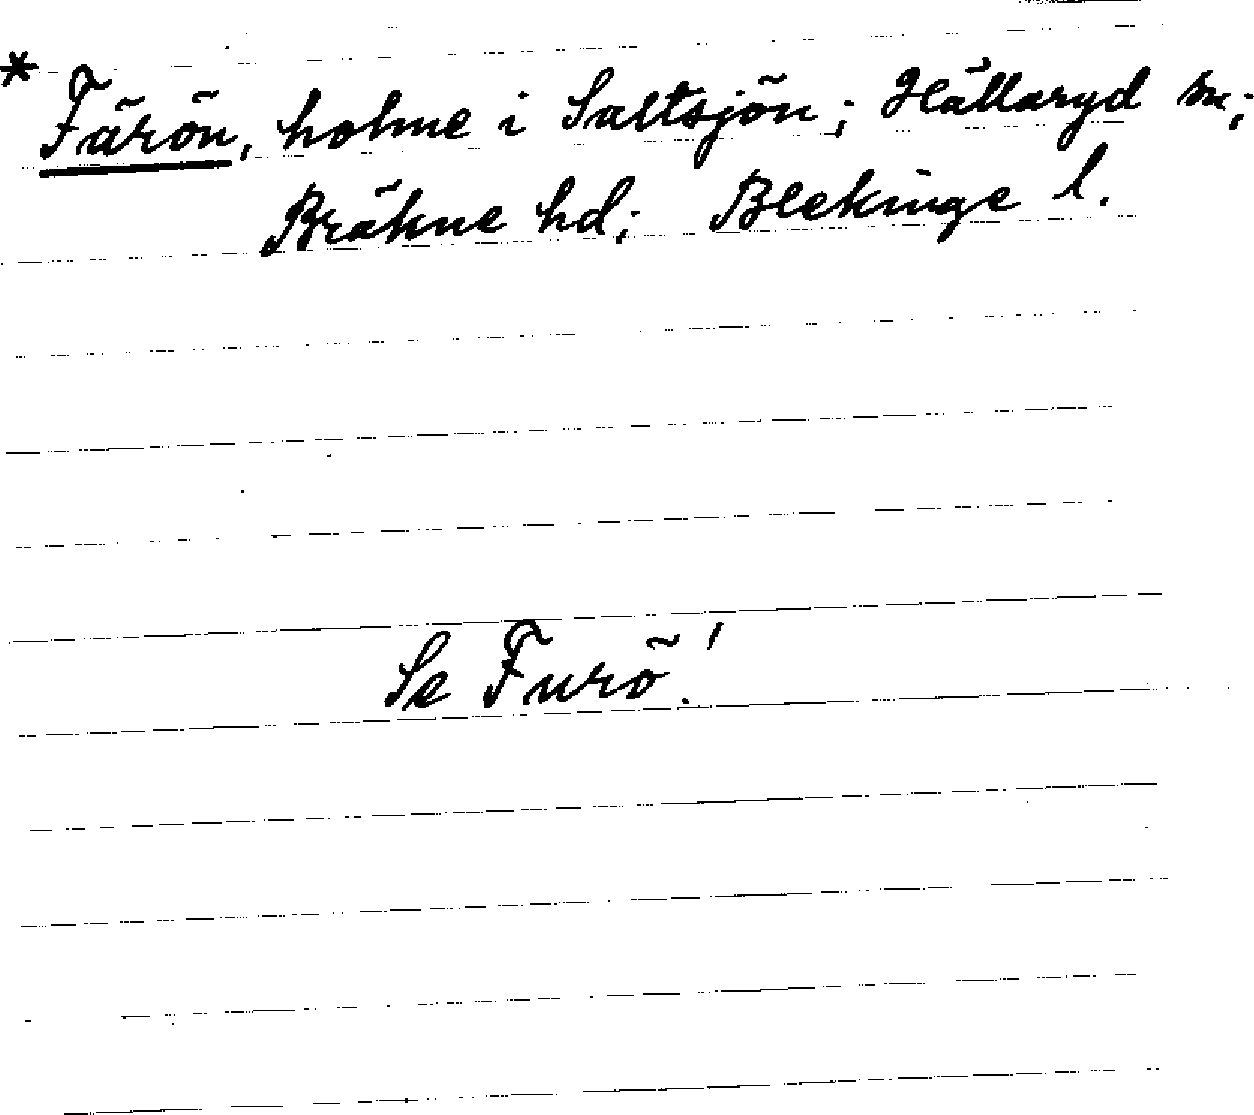 * Färön, holme i Saltsjön; Hällaryd sn;
Bräkne hd; Blekinge l.
Se Furö!